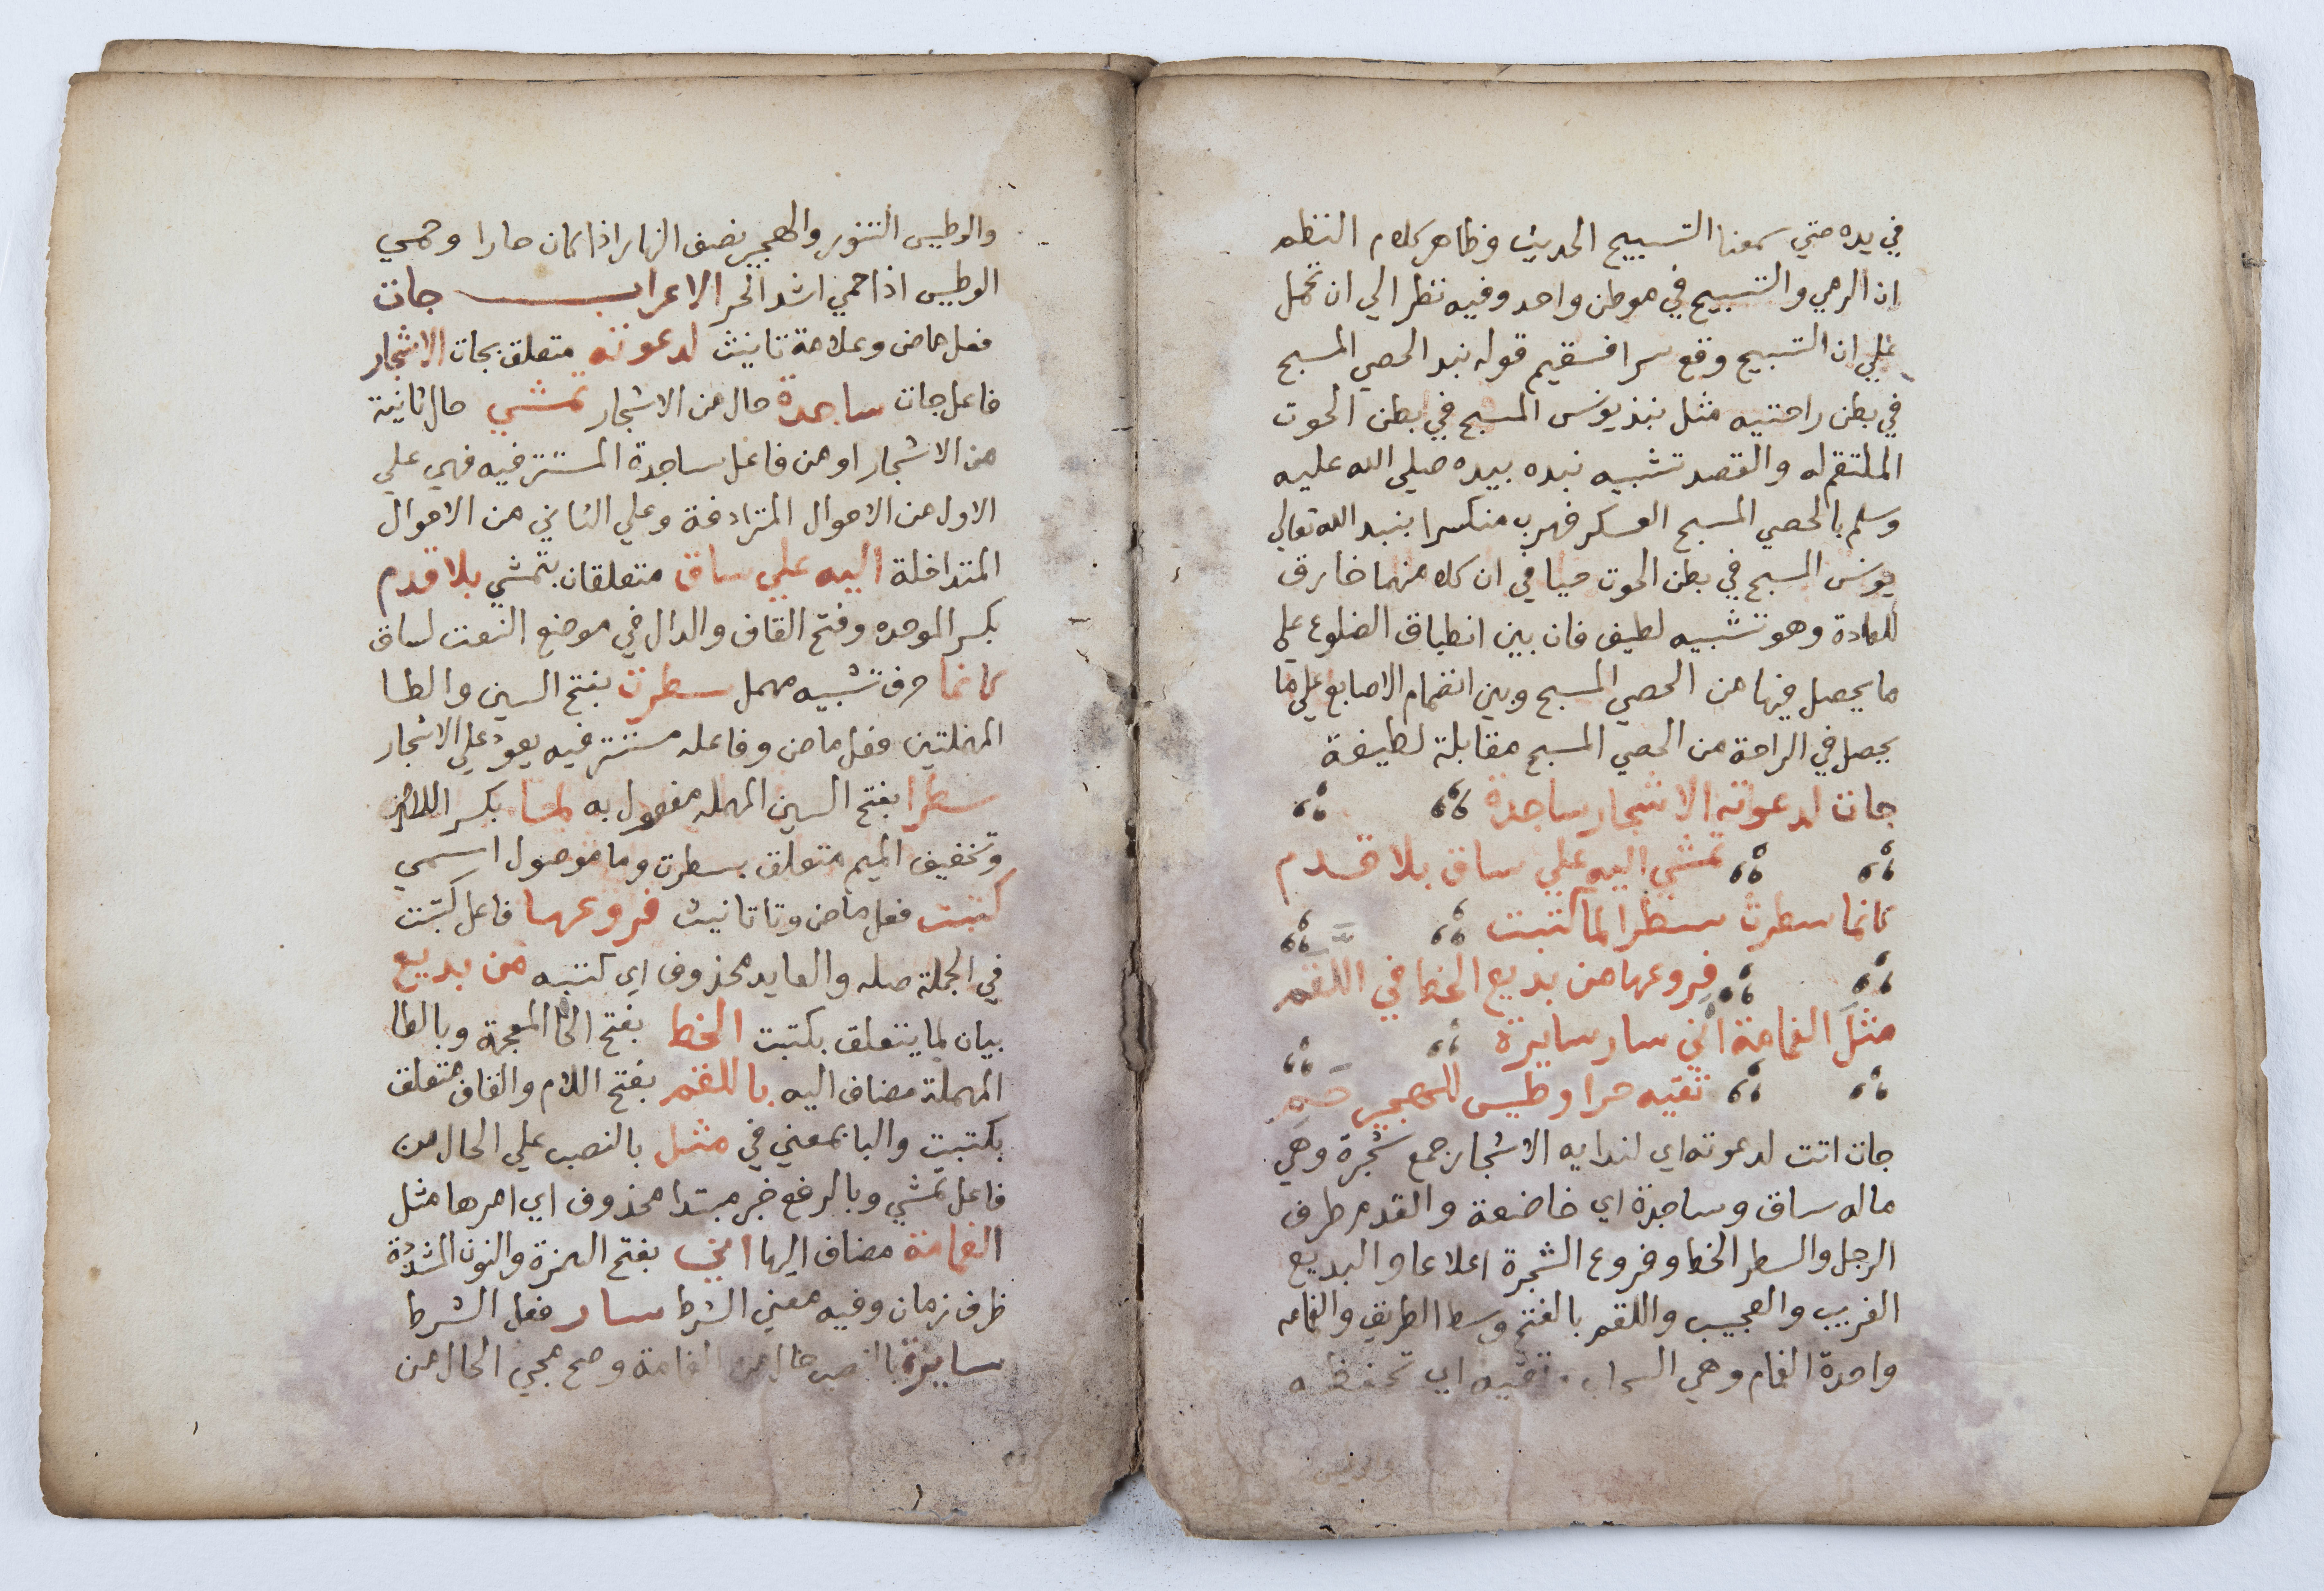 في يده حتي سمعنا التسبيح الحديث وظاهر كلام النظم
ان الرمي والتسبيح في موطن واحد وفيه نظر الي ان تحمل
علي ان التسبيح وقع سرا فسقيم قوله نبد الحصي المسبح
في بطن راحتيه مثل نبذ يونس المسبح في بطن الحوت
الملتقم له والقصد تشبيه نبده بيده صلي الله عليه
وسلم بالحصي المسبح العسكر فهرب منكسرا بنبد الله تعالي
يونس المسبح في بطن الحوت حيا في ان كلا منهما خارق
للعادة وهو تشبيه لطيف فان بين انطباق الضلوع علي
ما يحصل فيها من الحصي المسبح وبين انضمام الاصابع علي ما
يحصل في الراحة من الحصي المسبح مقابلة لطيفة
جات لدعوته الاشجار ساجدة
تمشي اليه علي ساق بلا قدم
كانما سطرت سطرا لما كتبت
فروعها من بديع الخط في اللقم
مثل الغمامة اني سار سايرة
تقيه حرا وطيس للهجير حم
جات اتت لدعوته اي لندايه الاشجار جمع شجرة وهي
ماله ساق وساجدة اي خاضعة والقدم طرف
الرجل والسطر الخط وفروع الشجرة اعلاها والبديع
الغريب والعجيب واللقم بالفتح وسط الطريق والغمامه
واحدة الغمام وهي السحاب تقيه اي تحفظه
والوطيس
والوطيس التنور والهجير نصف النهار اذا كان حارا وحمي
الوطيس اذا حمي اشد الحر الاعراب جات
فعل ماض وعلامة تانيث لدعوته متعلق بجات الاشجار
فاعل جات ساجدة حال من الاشجار تمشي حال ثانية
من الاشجار او من فاعل ساجدة المستتر فيه فهي علي
الاول من الاحوال المترادفة وعلي الثاني من الاحوال
المتداخلة اليه علي ساق متعلقان بتمشي بلا قدم
بكسر الموحده وفتح القاف والدال في موضع النعت لساق
كانما حرف تشبيه مهمل سطرت بفتح السين والطا
المهملتين فعل ماض وفاعله مستتر فيه يعود علي الاشجار
سطرا بفتح السين المهمله مفعول به لما بكسر اللام
وتخفيف الميم متعلق بسطرت وما موصول اسمي
كتبت فعل ماض وتا تانيث فروعها فاعل كتبت
في الجملة صله والعايد محذوف اي كتبته من بديع
بيان لما يتعلق بكتبت الخط بفتح الخا المعجمة وبالطا
المهملة مضاف اليه باللقم بفتح اللام والقاف متعلق
بكتبت والبا بمعني في مثل بالنصب علي الحال من
فاعل تمشي وبالرفع خبر مبتدا محذوف اي امرها مثل
الغمامة مضاف اليها اني بفتح الهمزة والنون المشددة
ظرف زمان وفيه معني الشرط سار فعل الشرط
سايرة بالنصب حال من الغمامة وصح مجي الحال من